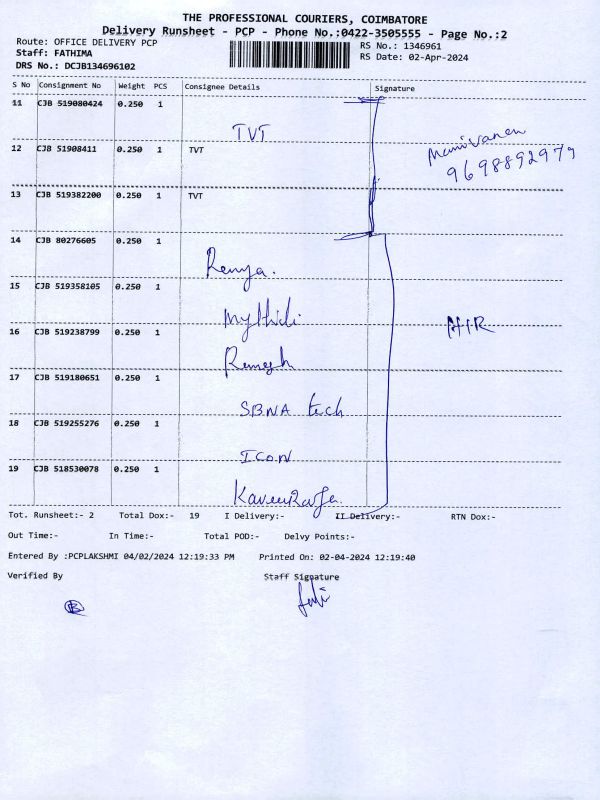 THE PROFESSIONAL COURIERS, COIMBATORE
Delivery Runsheet - PCP - Phone No.:0422-3505555 - Page No.:2
Route: OFFICE DELIVERY PCP RS No.: 1346961
Staff: FATHIMA RS Date: 02-Apr-2024
DRS No.: DCJB134696102
S No Consignment No Weight PCS Consignee Details Signature
11 CJB 519080424 0.250 1 TVT
12 CJB 51908411 0.250 1 TVT
9698892979
13 CJB 519382200 0.250 1 TVT
14 CJB 80276605 0.250 1 Remya.
15 CJB 519358105 0.250 1 Mythili
16 CJB 519238799 0.250 1 Ramesh
17 CJB 519180651 0.250 1 SBNA tech
18 CJB 519255276 0.250 1 ICON
19 CJB 518530078 0.250 1
Tot. Runsheet:- 2 Total Dox:- 19 I Delivery:- II Delivery:- RTN Dox:-
Out Time:- In Time:- Total POD:- Delvy Points:-
Entered By :PCPLAKSHMI 04/02/2024 12:19:33 PM Printed On: 02-04-2024 12:19:40
Verified By Staff Signature